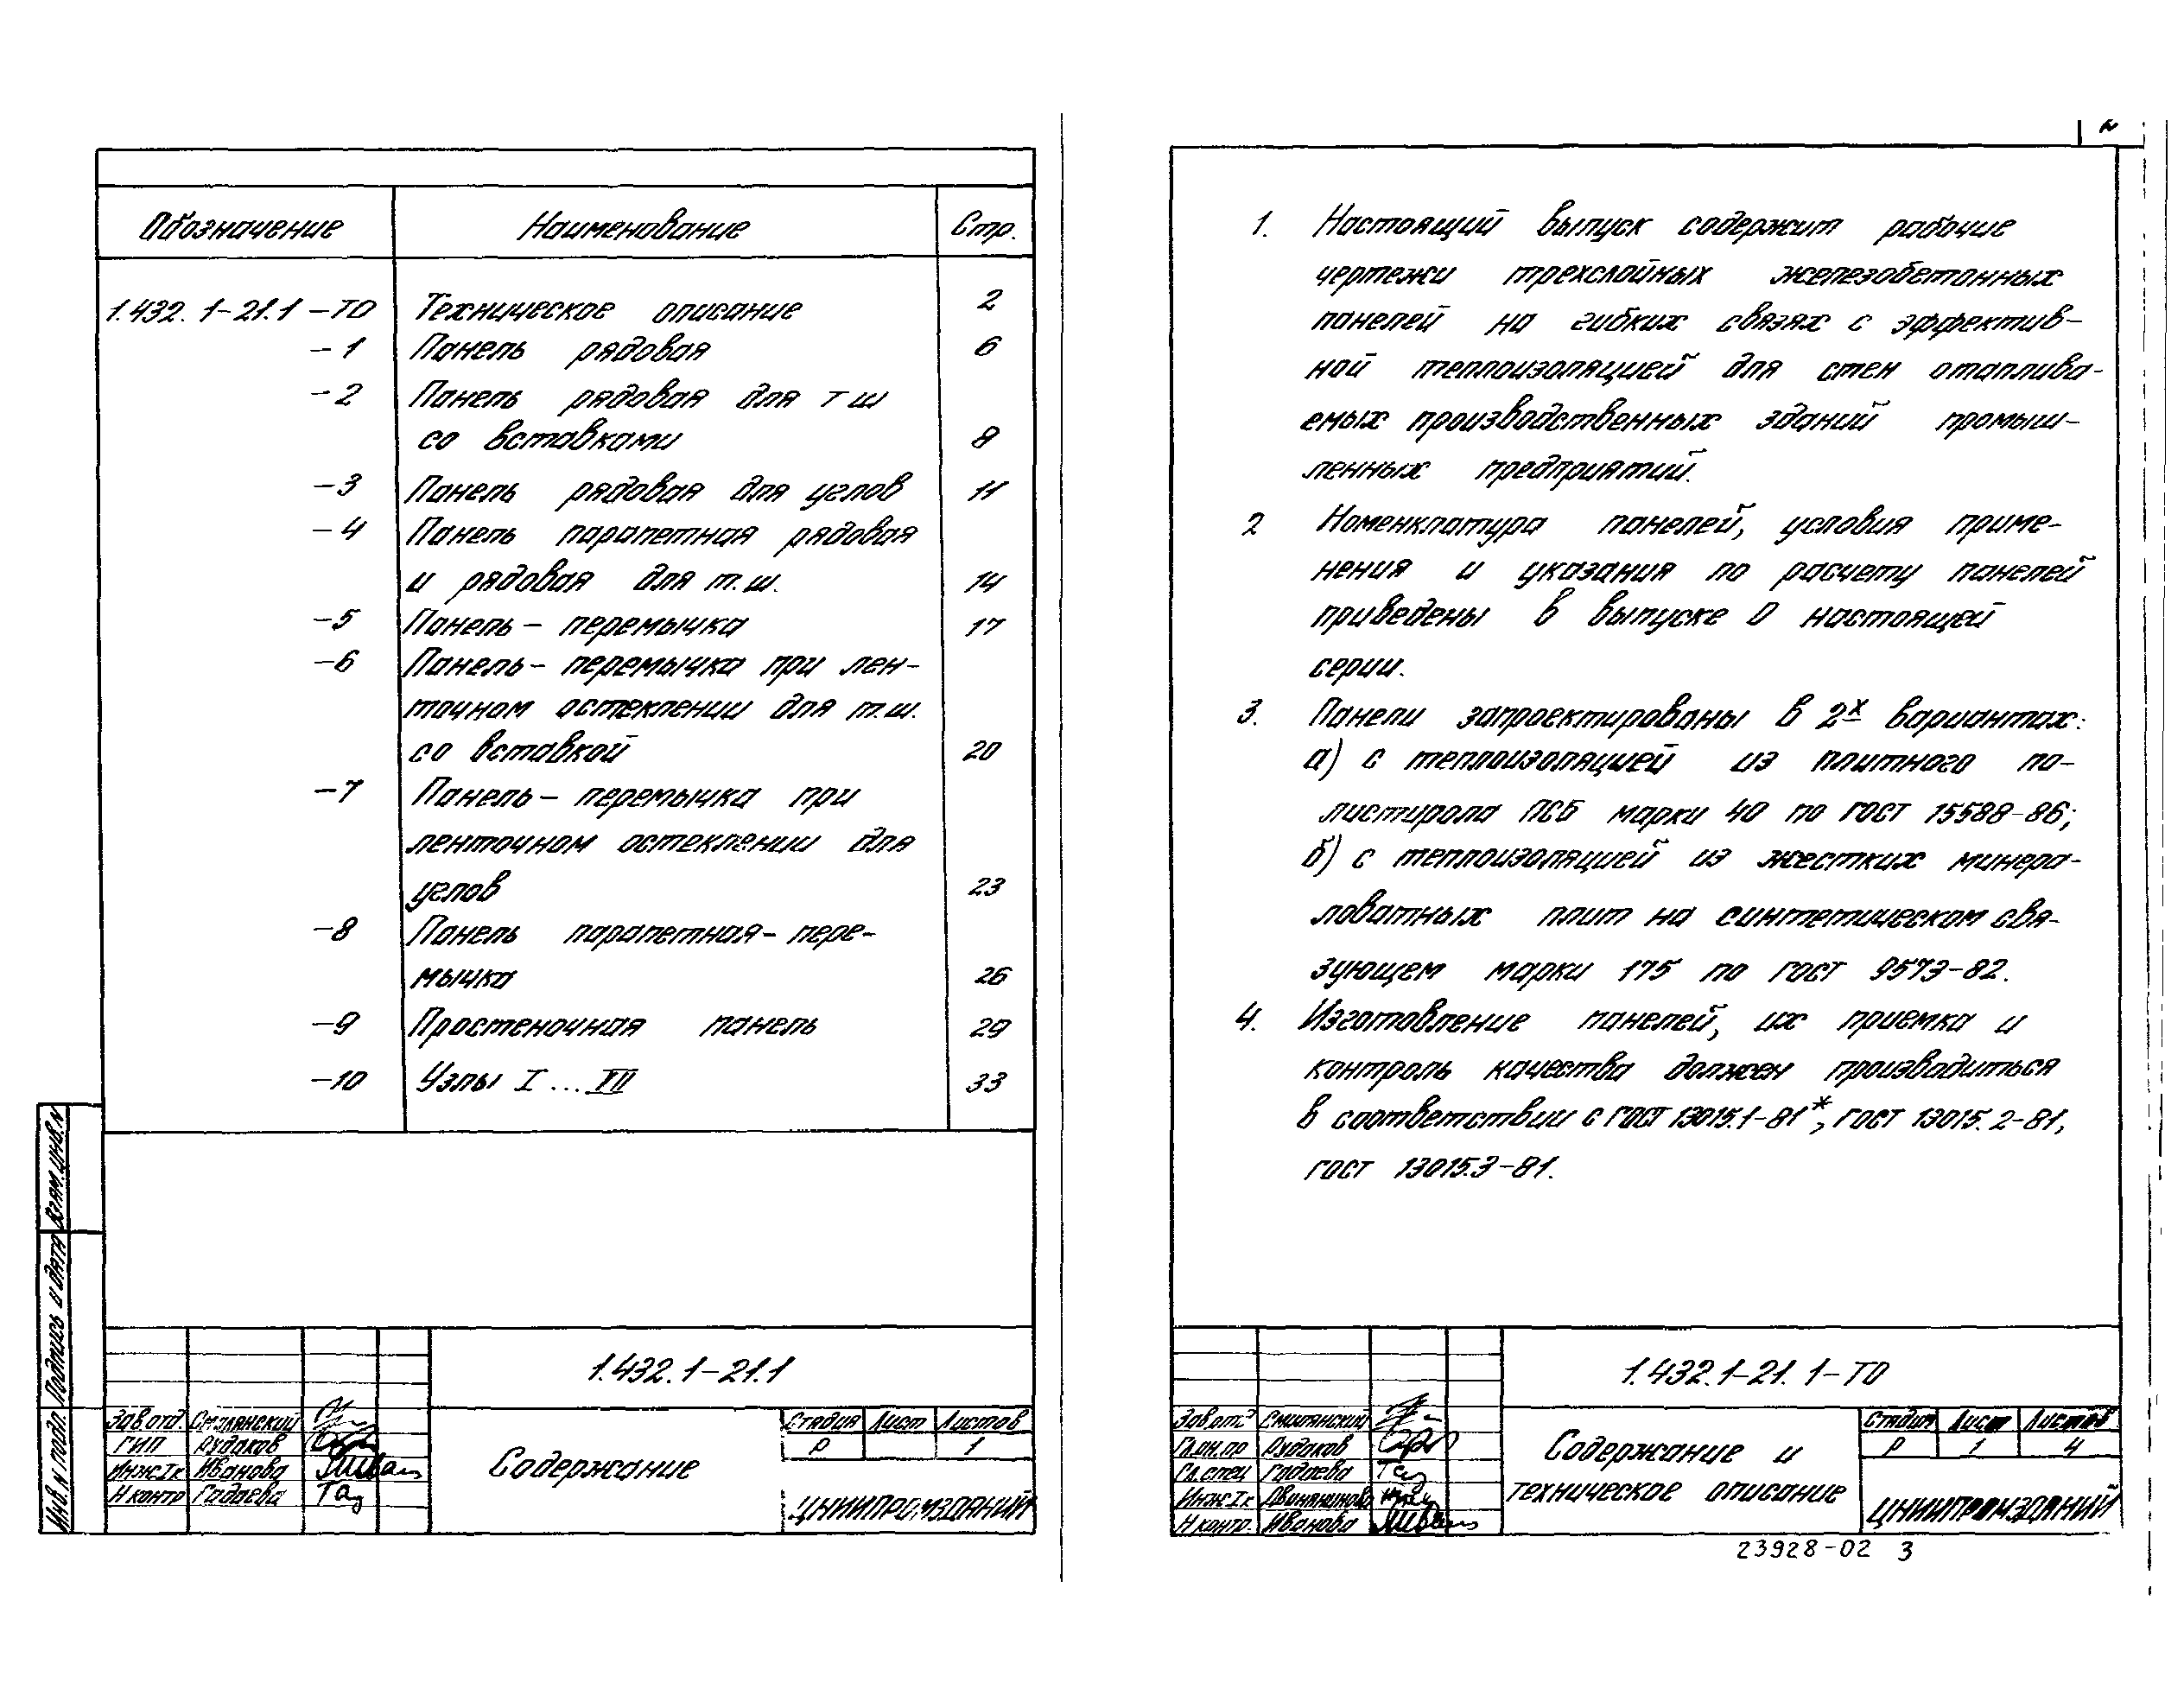 Обозначение Наименование Стр.
1.432.1-21.1-ТО Техническое описание 2
-1 Панель рядовая 6
-2 Панель рядовая для т ш
со вставками 8
-3 Панель рядовая для углов 11
-4 Панель парапетная рядовая
и рядовая для т.ш. 14
-5 Панель-перемычка 17
-6 Панель-перемычка при лен-
точном остеклении для т.ш.
со вставкой 20
-7 Панель-перемычка при
ленточном остеклении для
углов 23
-8 Панель парапетная-пере-
мычка 26
-9 Простеночная панель 29
-10 Узлы I...XII 33
Взам.инв.N
Подпись и дата
Инв.N подл.
1.432.1-21.1
Зав.отд. Смилянский
ГИП Рудаков
Инж.Iк Иванова
Н контр Гадаева
Содержание
Стадия Лист Листов
Р 1
ЦНИИПРОМЗДАНИЙ
1. Настоящий выпуск содержит рабочие
чертежи трехслойных железобетонных
панелей на гибких связях с эффектив-
ной теплоизоляцией для стен отаплива-
емых производственных зданий промыш-
ленных предприятий.
2 Номенклатура панелей, условия приме-
нения и указания по расчету панелей
приведены в выпуске 0 настоящей
серии.
3. Панели запроектированы в 2х вариантах:
а) с теплоизоляцией из плитного по-
листирола ПСБ марки 40 по ГОСТ 15588-86;
б) с теплоизоляцией из жестких минера-
ловатных плит на синтетическом свя-
зующем марки 175 по ГОСТ 9573-82.
4. Изготовление панелей, их приемка и
контроль качества должен производиться
в соответствии с ГОСТ 13015.1-81*, ГОСТ 13015.2-81,
ГОСТ 13015.3-81.
1.432.1-21.1-ТО
Зав.отд Смилянский
Гл.ин.пр Рудаков
Гл.спец Гадаева
Инж.Iк
Н контр. Иванова
Содержание и
техническое описание
Стадия Лист Листов
Р 1 4
ЦНИИПРОМЗДАНИЙ
23928-02 3